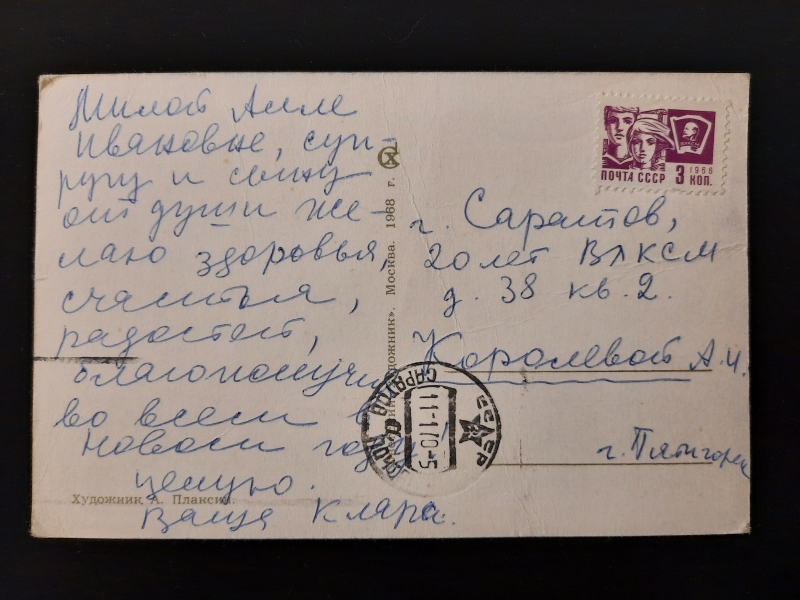 Милой Алле
Ивановне, суп-
ругу и сыну
от души же-
лаю здоровья,
счастья,
радостей,
благополучия
во всем в
Новом году!
Целую.
Ваша Клара.
Художник А. Плаксин.
художник». Москва. 1968 г.
1966
ПОЧТА СССР 3 КОП.
г. Саратов,
20 лет ВЛКСМ
д. 38 кв. 2.
Королевой А.И.
г. Пятигорск
СССР
11-1170-5
САРАТОВ